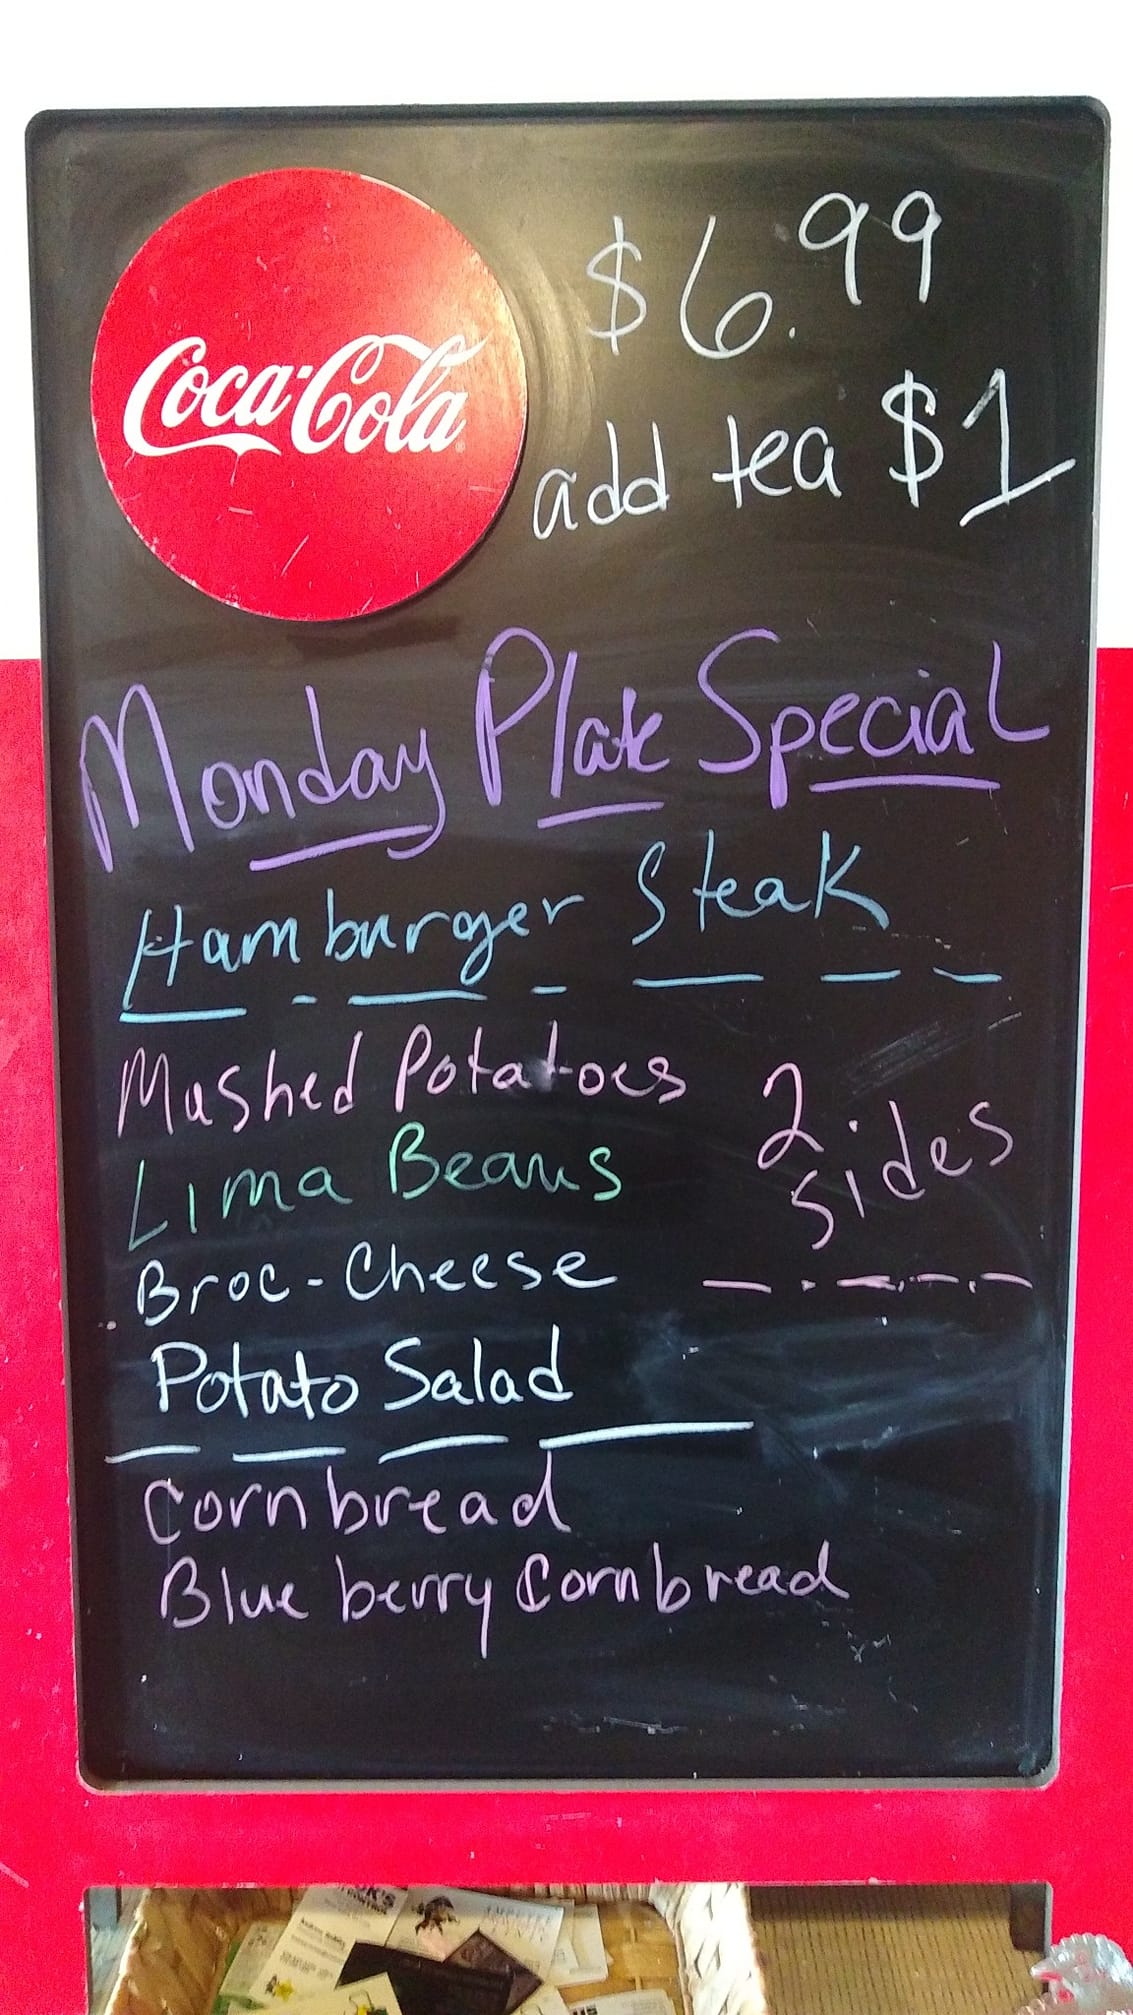 Coca-Cola
$6.99
add tea $1
Monday Plate Special
Hamburger Steak
Mashed Potatoes
2 sides
Lima Beans
Broc-Cheese
Potato Salad
Cornbread
Blue berry Cornbread